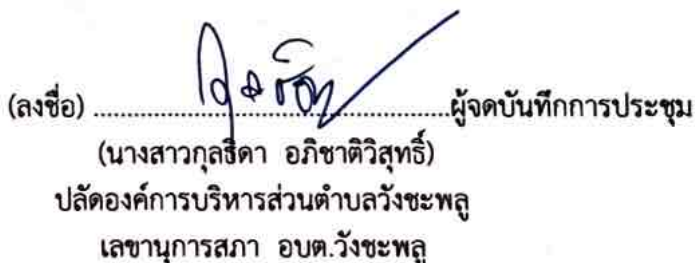 (ลงชื่อ) ..................................................ผู้จดบันทึกการประชุม
(นางสาวกุลธิดา อภิชาติวิสุทธิ์)
ปลัดองค์การบริหารส่วนตำบลวังชะพลู
เลขานุการสภา อบต.วังชะพลู